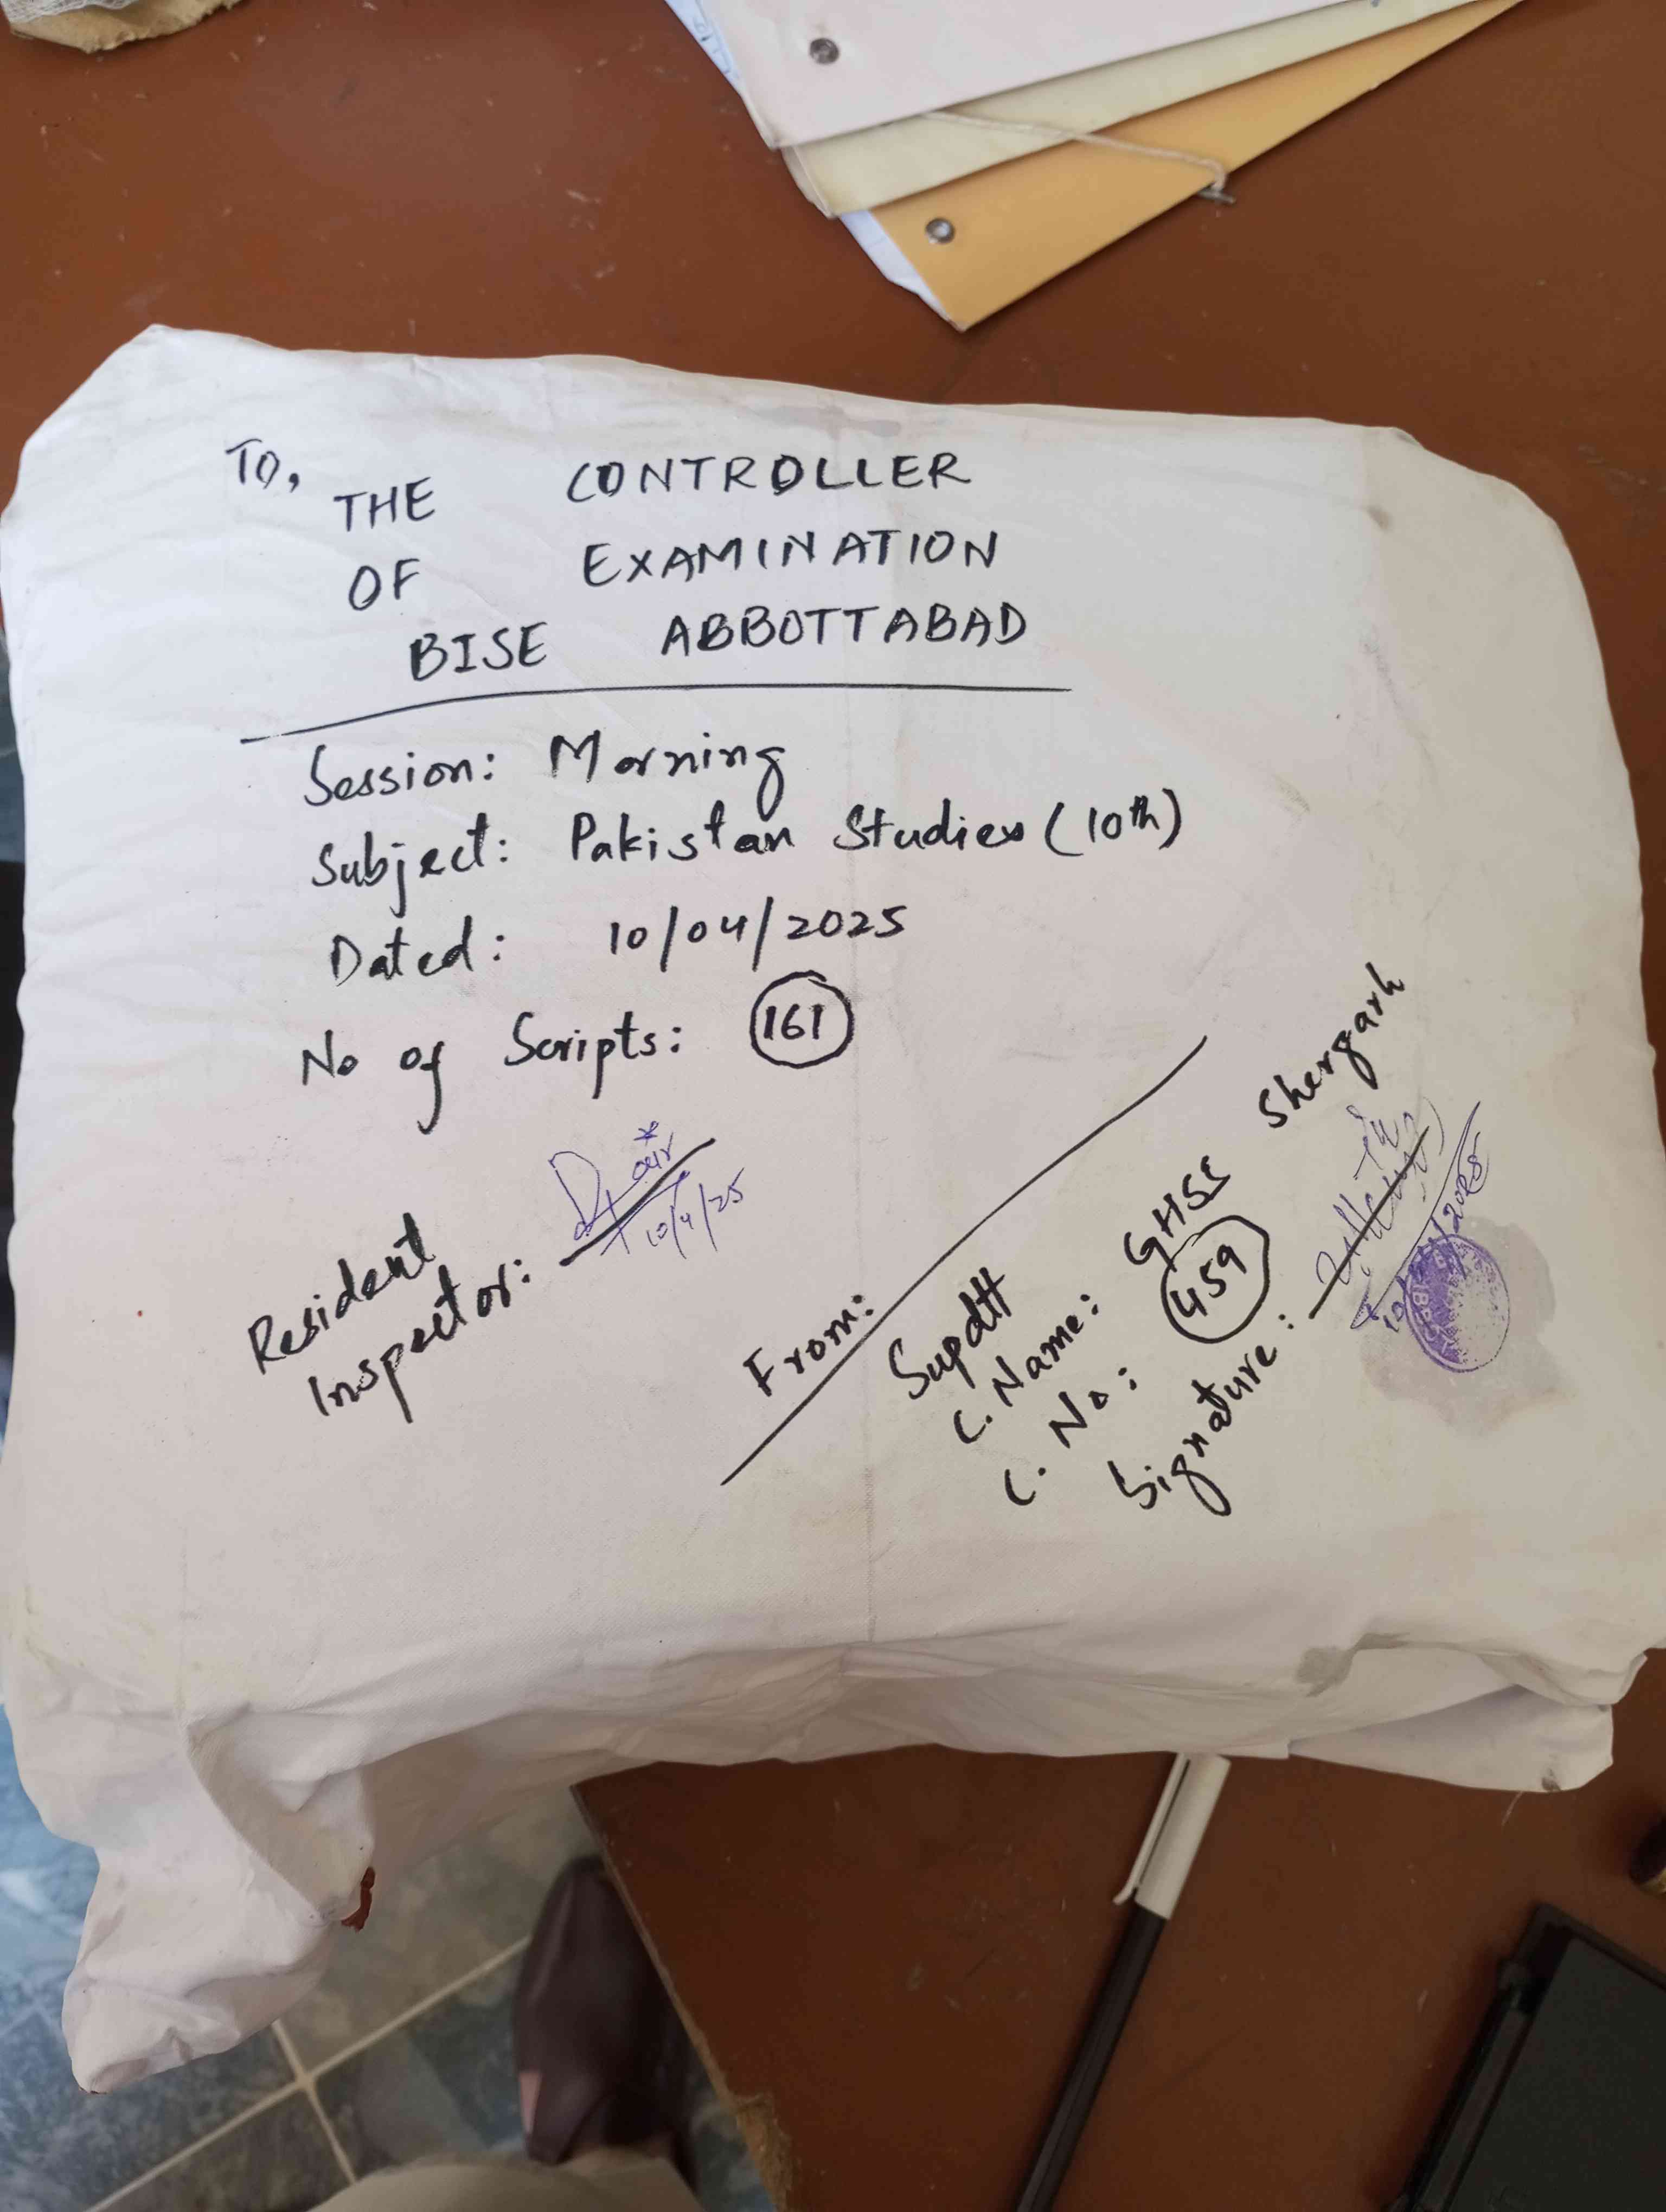 TO,
THE CONTROLLER
OF EXAMINATION
BISE ABBOTTABAD
Session: Morning
Subject: Pakistan Studies (10th)
Dated: 10/04/2025
No of Scripts: 161
Resident
Inspector:
10/4/25
From:
Supdtt
C. Name: GHSS Shergarh
C. No: 459
Signature: